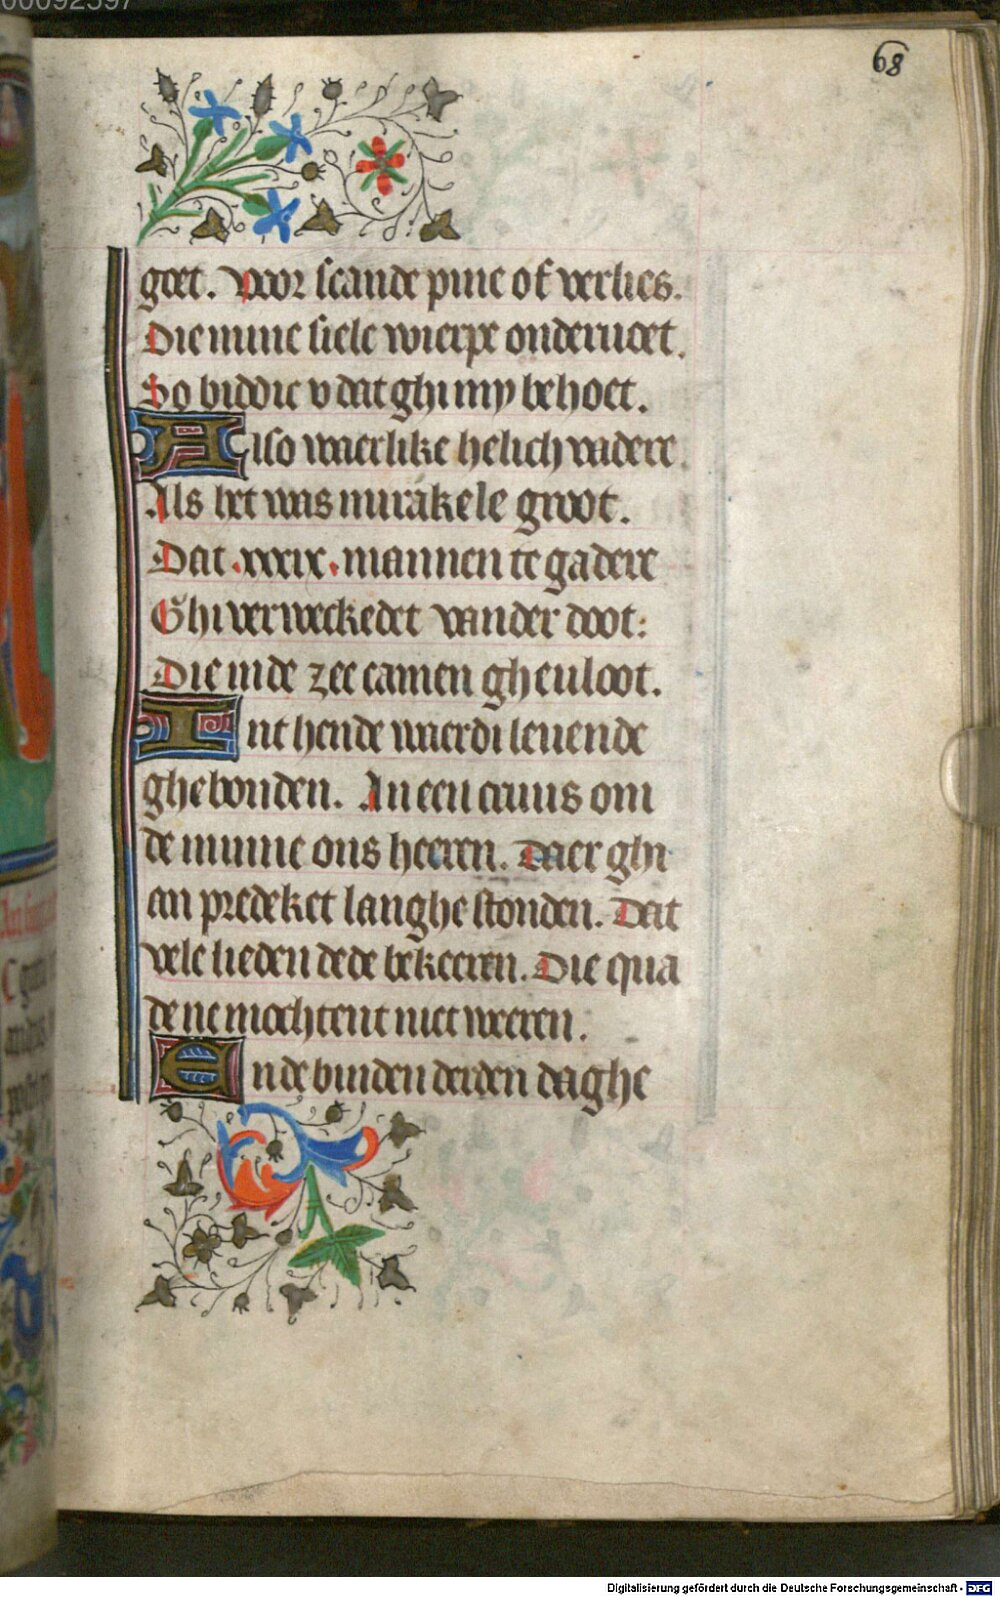 00092597
68
goet. Voor scande pine of verlies.
Die mine siele wierpe onderuoet.
So biddic v dat ghi my behoet.
Also waerlike helich vadere
Als het was mirakele groot.
Dat .xxxix. mannen te gadere
Ghi verweckedet vander doot:
Die inde zee camen gheuloot.
Int hende waerdi leuende
ghebonden. An een cruus om
de minne ons heeren. Daer ghi
an predeket langhe stonden. Dat
vele lieden dede bekeeren. Die qua
de ne mochtent niet weeren.
Ende binden derden daghe
Digitalisierung gefördert durch die Deutsche Forschungsgemeinschaft - DFG